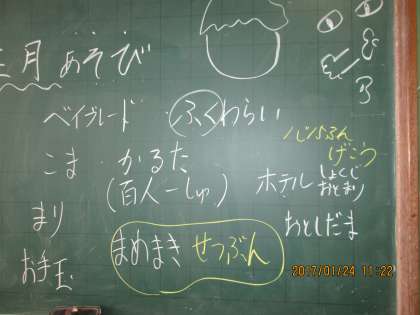 正月あそび
ベイブレード
ふくわらい
こま
かるた
(百人一しゅ)
まり
お手玉
まめまき せつぶん
げこう
ホテル
しょくじ
おとまり
おとしだま
2017/01/24 11:22